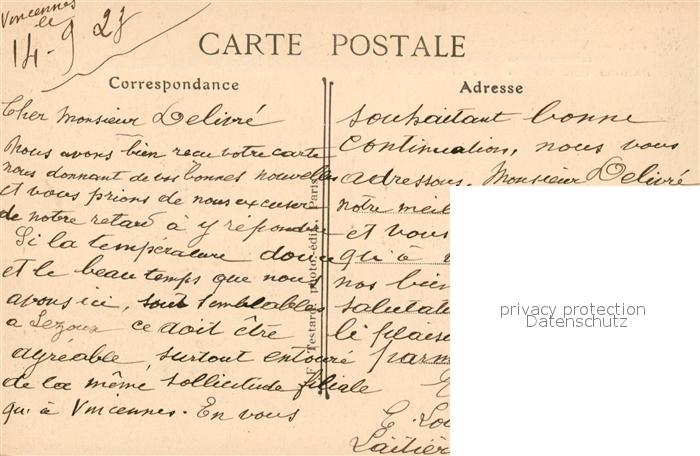 Vincennes
le
14-9 27
CARTE POSTALE
Correspondance
Cher Monsieur Delivré
Nous avons bien recu votre carte
nous donnant de vos bonnes nouvelles
et vous prions de nous excuser
de notre retard à y répondre
Si la température douce
et le beau temps que nous
avons ici, sont semblables
a Lezoux ce doit être
agréable surtout entouré
de la même sollicitude filiale
qu'à Vincennes. En vous
F. Testard, photo-édit., Paris
Adresse
souhaitant bonne
continuation, nous vous
adressons, Monsieur Delivré
notre meil
et vous
qu'à
nos bien
salutat
le plaisi
parm
E. Lo
Laitier
privacy protection
Datenschutz